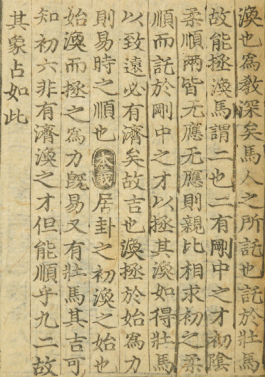 渙也為教深矣馬人之所託也託於壯馬
故能拯渙馬謂二也二有剛中之才初陰
柔順兩皆无應无應則親比相求初之柔
順而託於剛中之才以拯其渙如得壯馬
以致遠必有濟矣故吉也渙拯於始為力
則易時之順也本義居卦之初渙之始也
始渙而拯之為力旣易又有壯馬其吉可
知初六非有濟渙之才但能順乎九二故
其象占如此